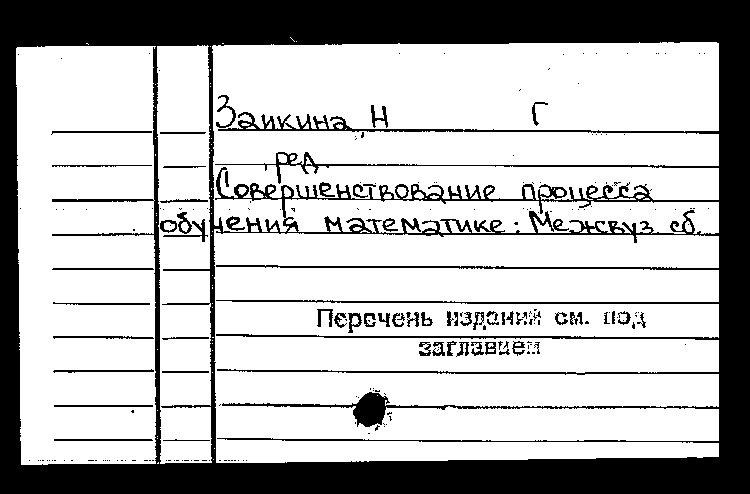 Заикина, Н Г
, ред.
Совершенствование процесса
обучения математике: Межвуз сб.
Перечень изданий см. под
заглавием